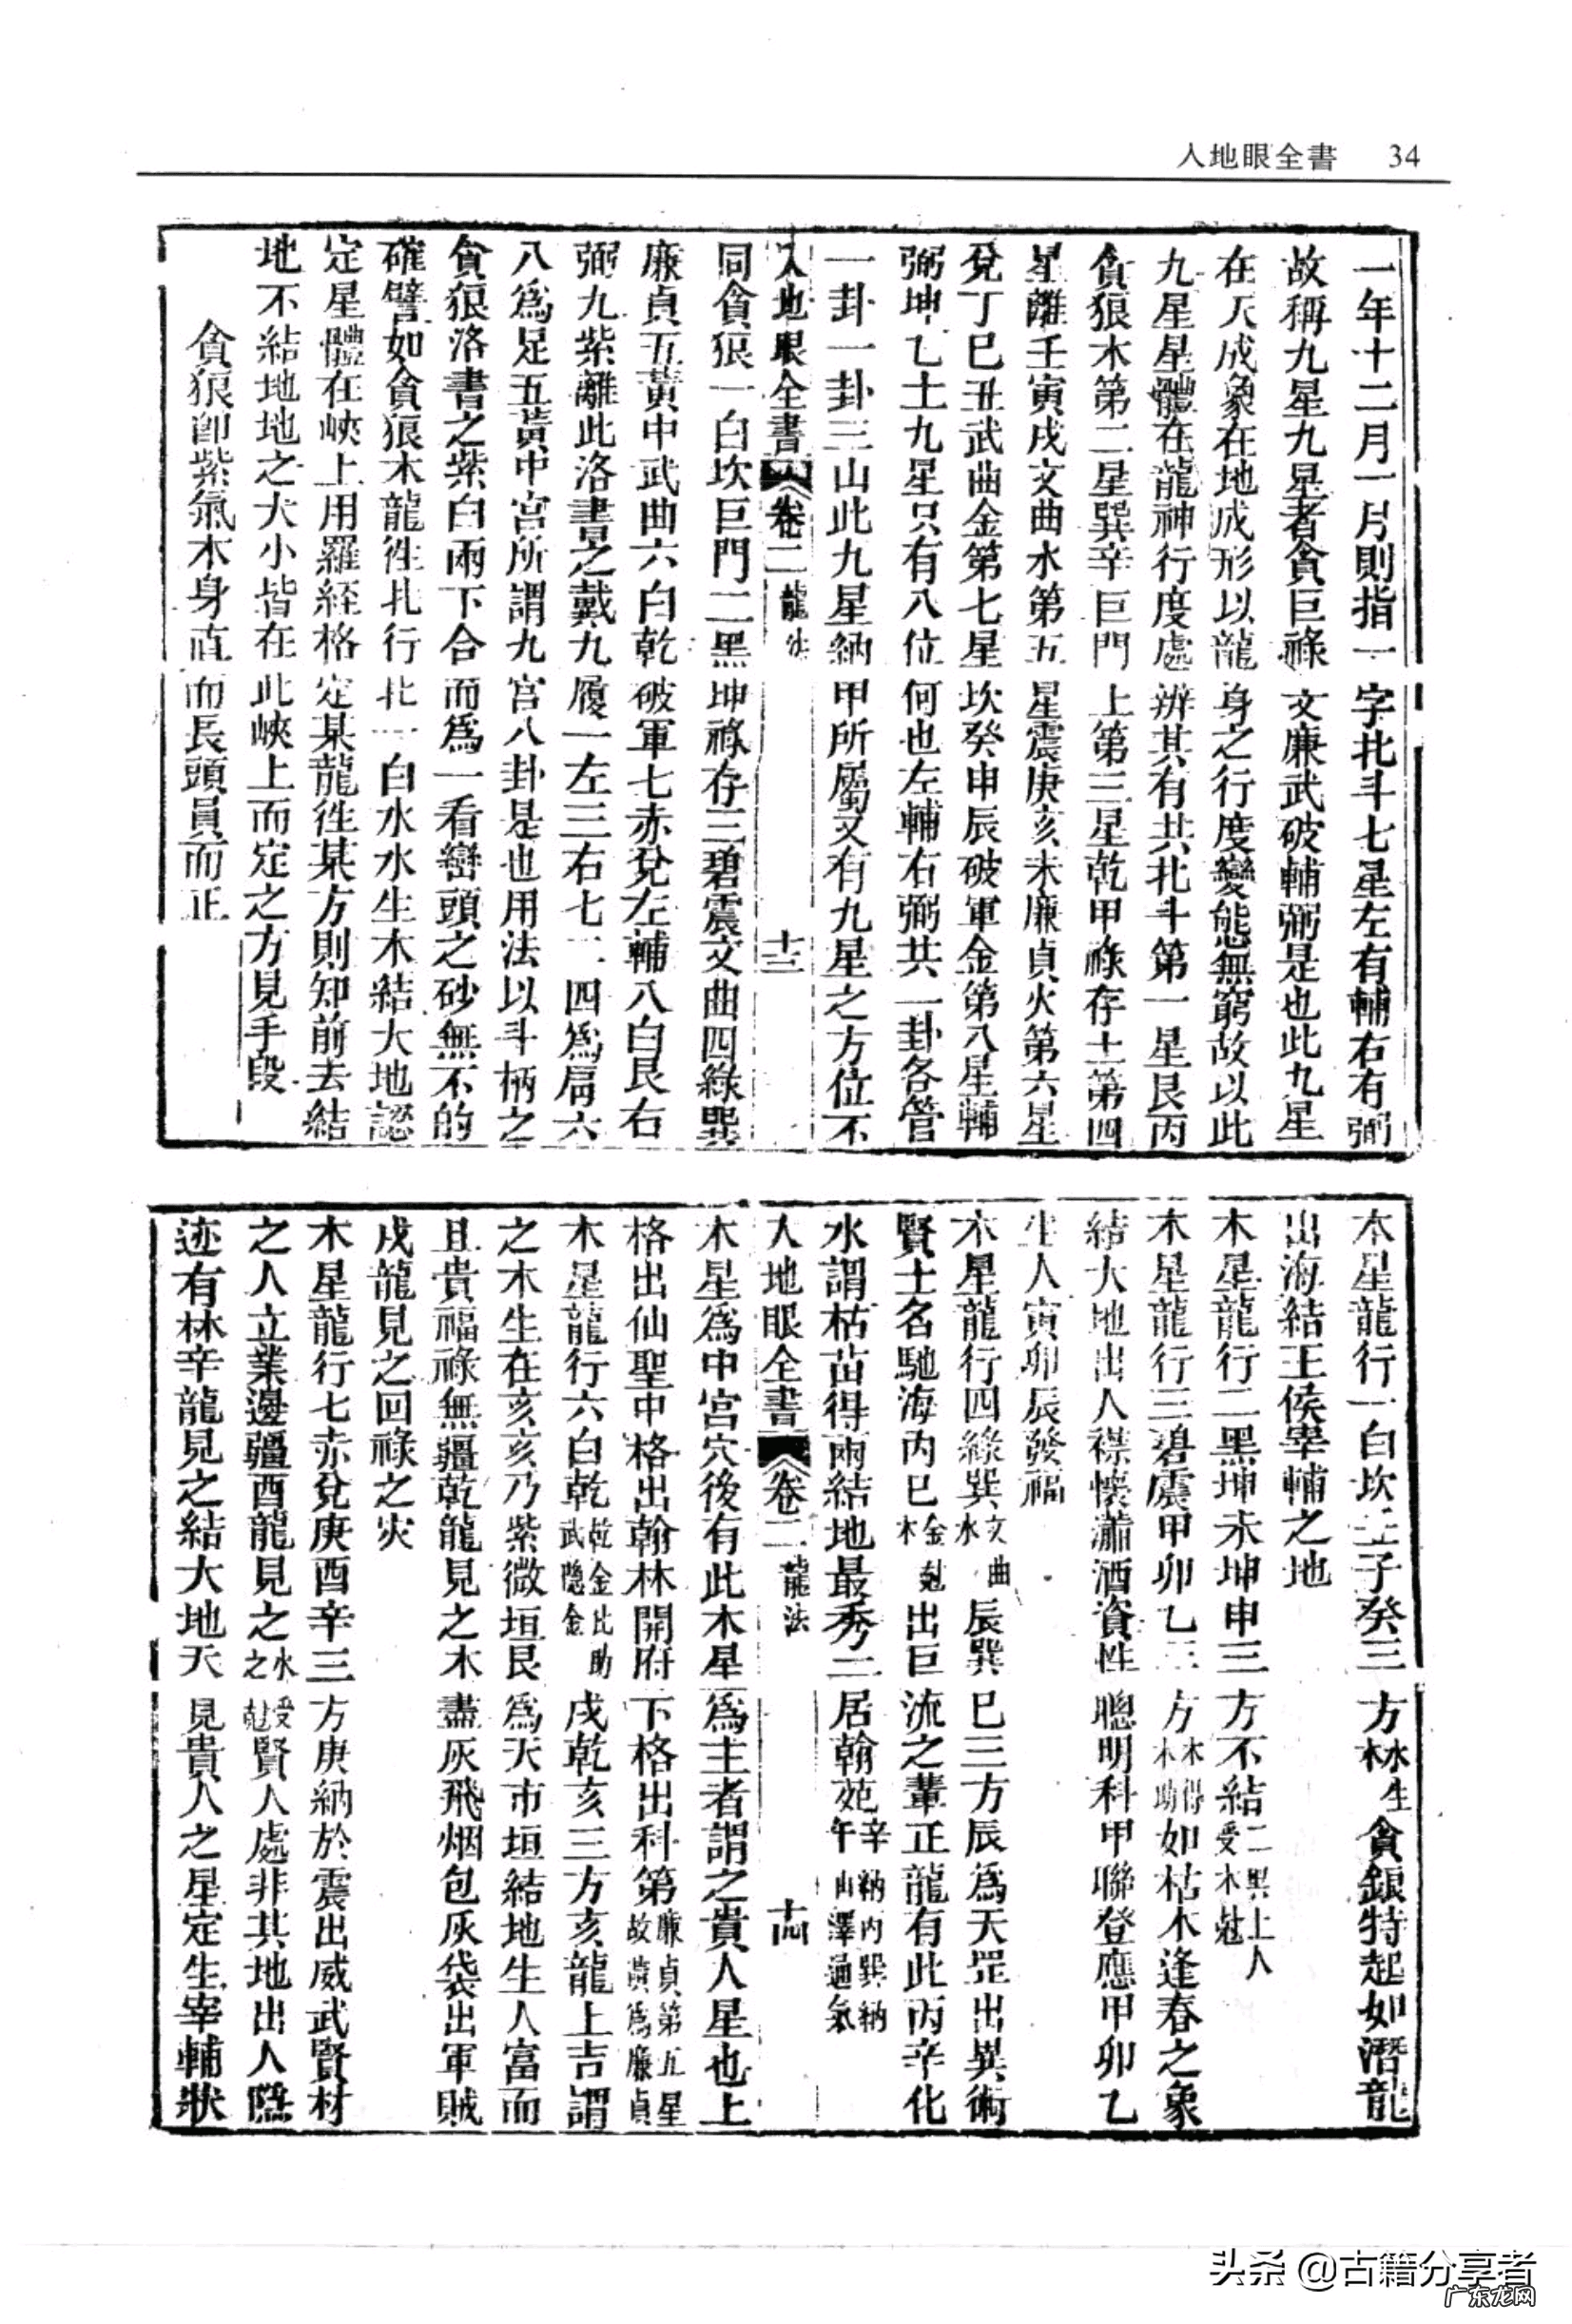 人地眼全書 34
一年十二月一月則指一字北斗七星左有輔右有弼
故稱九星九星者貪巨祿文廉武破輔弼是也此九星
在天成象在地成形以龍身之行度變態無窮故以此
九星星體在龍神行度處辨其有共北斗第一星艮丙
貪狼木第二星巽辛巨門上第三星乾甲祿存土第四
星離壬寅戌文曲水第五星震庚亥未廉貞火第六星
兌丁巳丑武曲金第七星坎癸申辰破軍金第八星輔
弼坤乙土九星只有八位何也左輔右弼共一卦各管
一卦一卦三山此九星納甲所屬又有九星之方位不
人地眼全書 卷二 龍法 十三
同貪狼一白坎巨門二黑坤祿存三碧震文曲四綠巽
廉貞五黃中武曲六白乾破軍七赤兌左輔八白艮右
弼九紫離此洛書之戴九履一左三右七二四爲肩六
八爲足五黃中宮所謂九宮八卦是也用法以斗柄之
貪狼洛書之紫白兩下合而爲一看巒頭之砂無不的
確譬如貪狼木龍徃北行北一白水水生木結大地認
定星體在峽上用羅経格定某龍徃某方則知前去結
地不結地地之大小皆在此峽上而定之方見手段
貪狼卽紫氣木身直而長頭員而正
木星龍行一白坎壬子癸三方水生木貪銀特起如潛龍
出海結王侯宰輔之地
木星龍行二黑坤未坤申三方不結二黑上人受木尅
木星龍行三碧震甲卯乙三方木得木助如枯木逢春之象
結大地出人襟懷瀟洒資性聰明科甲聯登應甲卯乙
生人寅卯辰發福
木星龍行四綠巽文曲水辰巽巳三方辰爲天罡出異術
賢士名馳海内巳金尅木出巨流之輩正龍有此丙辛化
水謂枯苗得雨結地最秀二居翰苑辛納内巽納午山澤通氣
人地眼全書 卷二 龍法 十四
木星爲中宮穴後有此木星爲主者謂之貴人星也上
格出仙聖中格出翰林開府下格出科第廉貞第五星故黃爲廉貞
木星龍行六白乾乾金比助武隐金戌乾亥三方亥龍上吉謂
之木生在亥亥乃紫微垣艮爲天市垣結地生人富而
且貴福祿無疆乾龍見之木盡灰飛烟包灰袋出軍賊
戌龍見之回祿之灾
木星龍行七赤兌庚酉辛三方庚納於震出威武賢材
之人立業邊疆酉龍見之水之受尅賢人處非其地出人隱
迹有林辛龍見之結大地天見貴人之星定生宰輔狀
头条@古籍分享者
广东龙网